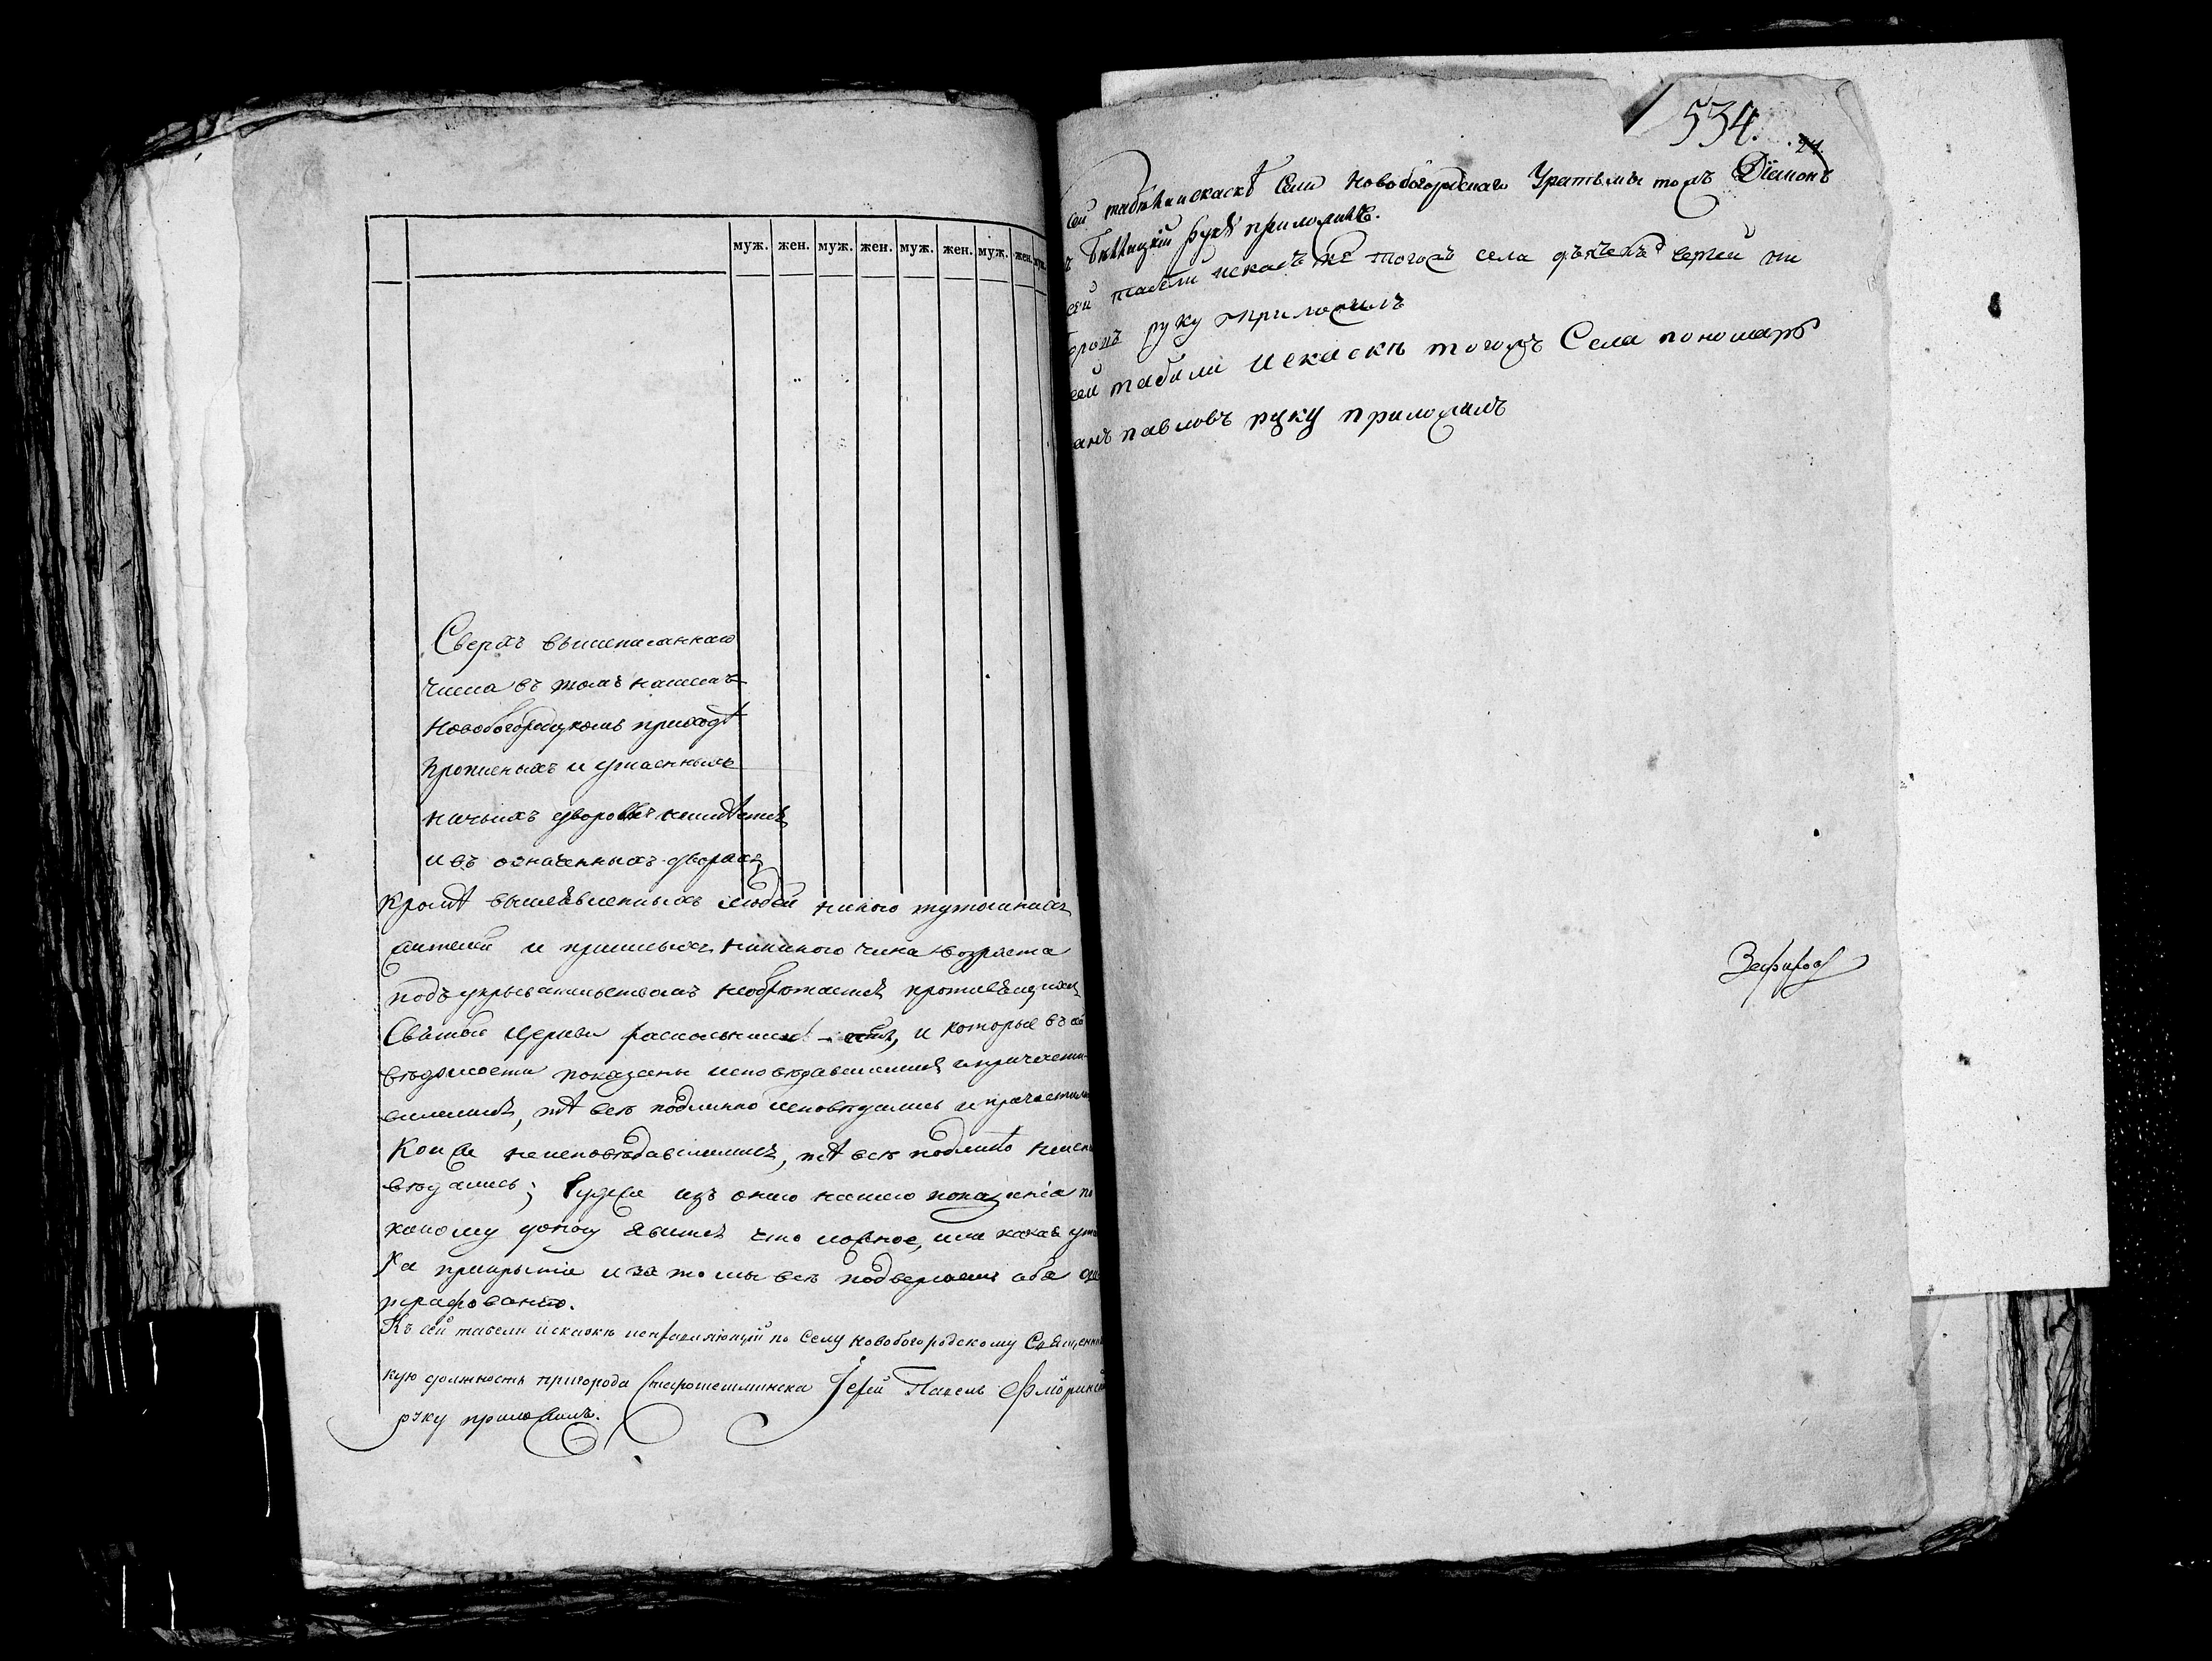 муж. жен. муж. жен. муж. жен. муж. жен. муж.
Сверхъ вышеписаннаго
числа въ томъ нашемъ
Новобогородцкомъ приходѣ
прописныхъ и утаенныхъ
ничьихъ дворовъ неимѣется
и въ означенныхъ дворахъ
кромѣ вышеявленныхъ людей никого тутошнихъ
жителей и пришлыхъ никакого чина и возраста
подъ укрывательствомъ необрѣтается противящихся
Святой церкви раскольниковъ нѣтъ, и которые въ сей
вѣдомости показаны исповѣдавшимися и причасти-
вшимися, тѣ всѣ подлинно исповѣдались и причастились
Кои же неисповѣдавшимись, тѣ всѣ подлинно неиспо
вѣдались; буде же изъ онаго нашего показанія по
какому доносу явится что ложное, или какая утай
ка прикрытіе и за то мы всѣ подвергаемъ себя
штрафованію.
Къ сей табели и скаскѣ исправляющій по Селу Новобогородскому Священниче
кую должность пригорода Старошешминска Іерей Павелъ Флоринс
руку приложилъ.
534.
24.
сей табели и скаскѣ Села Новобогородскаго Діаконъ
руку приложилъ.
сей табели искаскѣ тогожъ села дьячекъ Сергей
руку приложилъ
сей табели искаскѣ тогожъ Села пономарь
анъ павловъ руку приложилъ